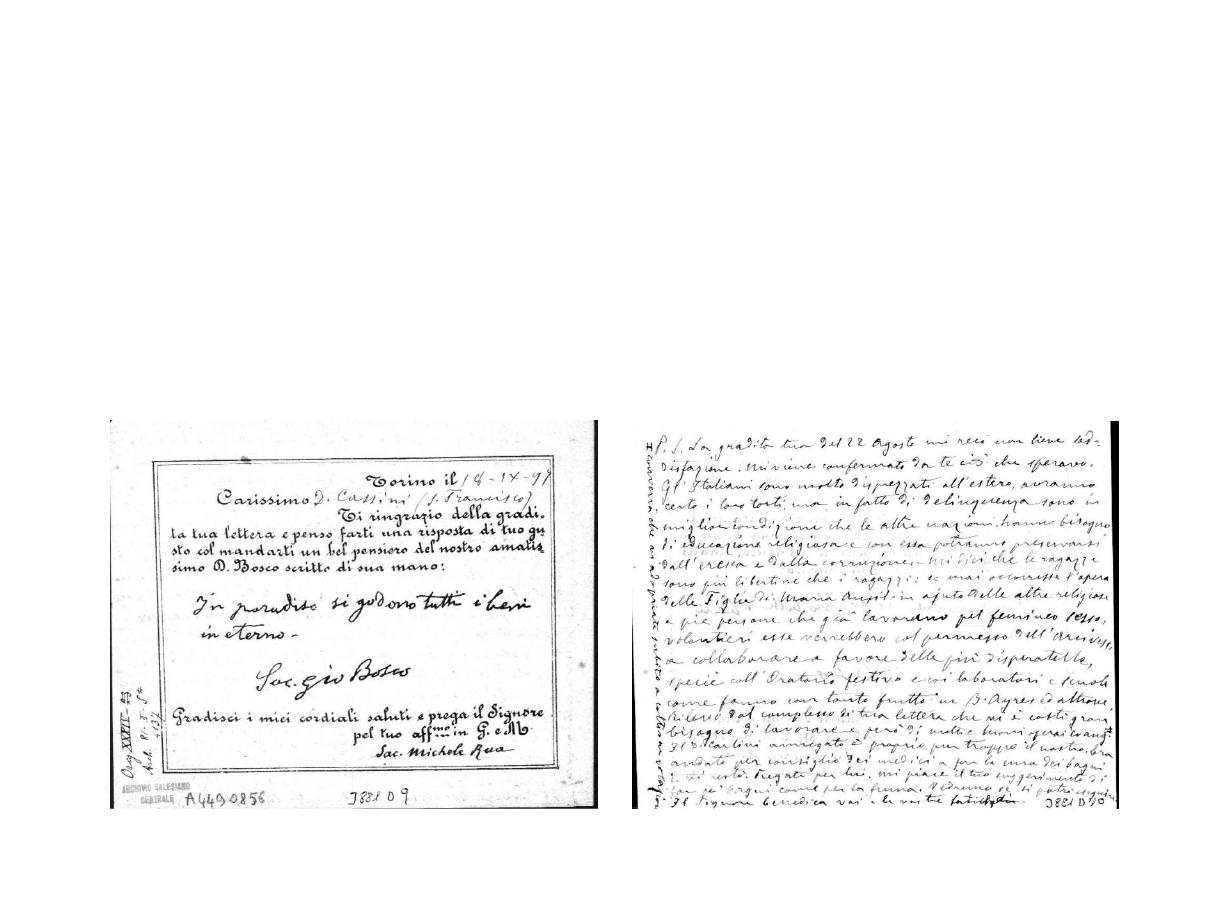 Torino il 18-IX-97
Carissimo D. Cassini (S. Francisco)
Ti ringrazio della gradi-
ta tua lettera e penso farti una risposta di tuo gu
sto col mandarti un bel pensiero del nostro amatis
simo D. Bosco scritto di sua mano:
In paradiso si godono tutti i beni
in eterno -
Sac. Gio Bosco
Gradisci i miei cordiali saluti e prega il Signore
pel tuo affmo in G. e M.
Sac. Michele Rua
ARCHIVIO SALESIANO
CENTRALE
A4490856
3881 D 9
P. S. La gradita tua del 22 Agosto mi recò non lieve sod-
disfazione. Mi viene confermato da te ciò che speravo.
Gl'Italiani sono molto disprezzati all'estero, avranno
certo i loro torti, ma in fatto di delinquenza sono in
miglior condizione che le altre nazioni. hanno bisogno
di educazione religiosa e con essa potranno preservarsi
dall'eresia e dalla corruzione. Mi dici che le ragazze
sono più libertine che i ragazzi: se mai occorresse l'opera
delle Figlie di Maria Ausil. in ajuto delle altre religiose
e pie persone che già lavorano pel femineo sesso,
volontieri esse verrebbero col permesso dell'Arcivesc.
a collaborare a favore delle più disperatelle,
specie coll'Oratorio festivo e coi laboratori e scuole
come fanno con tanto frutto in B. Ayres ed altrove.
Rilevo dal complesso di tua lettera che vi è costì gran
bisogno di lavorare e però di molti e buoni operai
Il D. Carlini annegato è proprio pur troppo il nostro. Era
andato per consiglio dei medici a far la cura dei bagni
e vi restò. Pregate per lui. Mi piace il tuo suggerimento di
pe' bagni come per la Vedremo se si potrà eseguire
Il Signore benedica voi e le vostre fatiche
3881 D 10